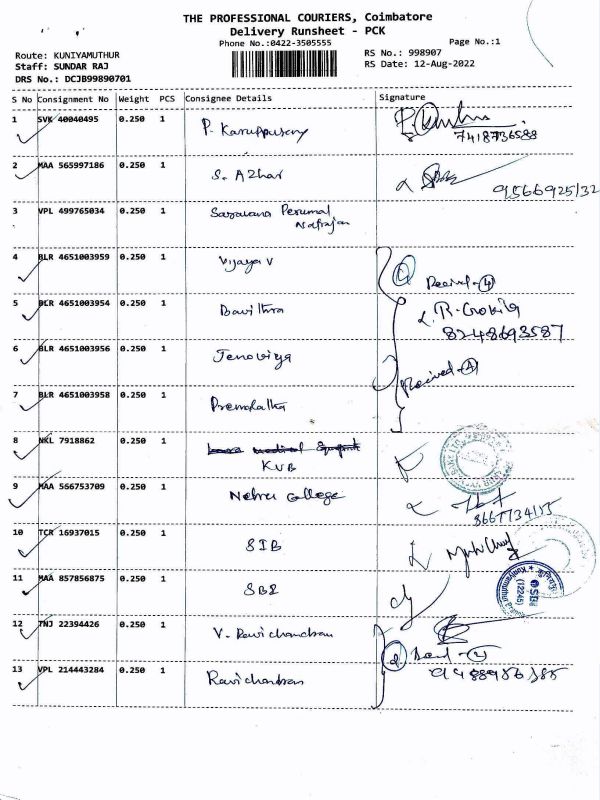 THE PROFESSIONAL COURIERS, Coimbatore
Delivery Runsheet - PCK
Phone No.:0422-3505555
Page No.:1
Route: KUNIYAMUTHUR
Staff: SUNDAR RAJ
DRS No.: DCJB99890701
RS No.: 998907
RS Date: 12-Aug-2022
S No Consignment No Weight PCS Consignee Details Signature
1 SVK 40040495 0.250 1 P. Karuppusamy
7418736588
2 MAA 565997186 0.250 1 S. Azhar
9566925132
3 VPL 499765034 0.250 1 Saravana Perumal
Natrajan
4 BLR 4651003959 0.250 1 Vijaya V
Received-4
5 BLR 4651003954 0.250 1 Pavithra R. Gokila
8248693587
6 BLR 4651003956 0.250 1 Jenoviya
Received-4
7 BLR 4651003958 0.250 1 Premalatha
8 NKL 7918862 0.250 1
KVB
9 MAA 566753709 0.250 1 Nehru College
10 TCR 16937015 0.250 1 SIB
11 MAA 857856875 0.250 1 SBI
SBI
(12245)
Kuniyamuthur
12 TNJ 22394426 0.250 1 V. Ravichandran
13 VPL 214443284 0.250 1 Ravichandran